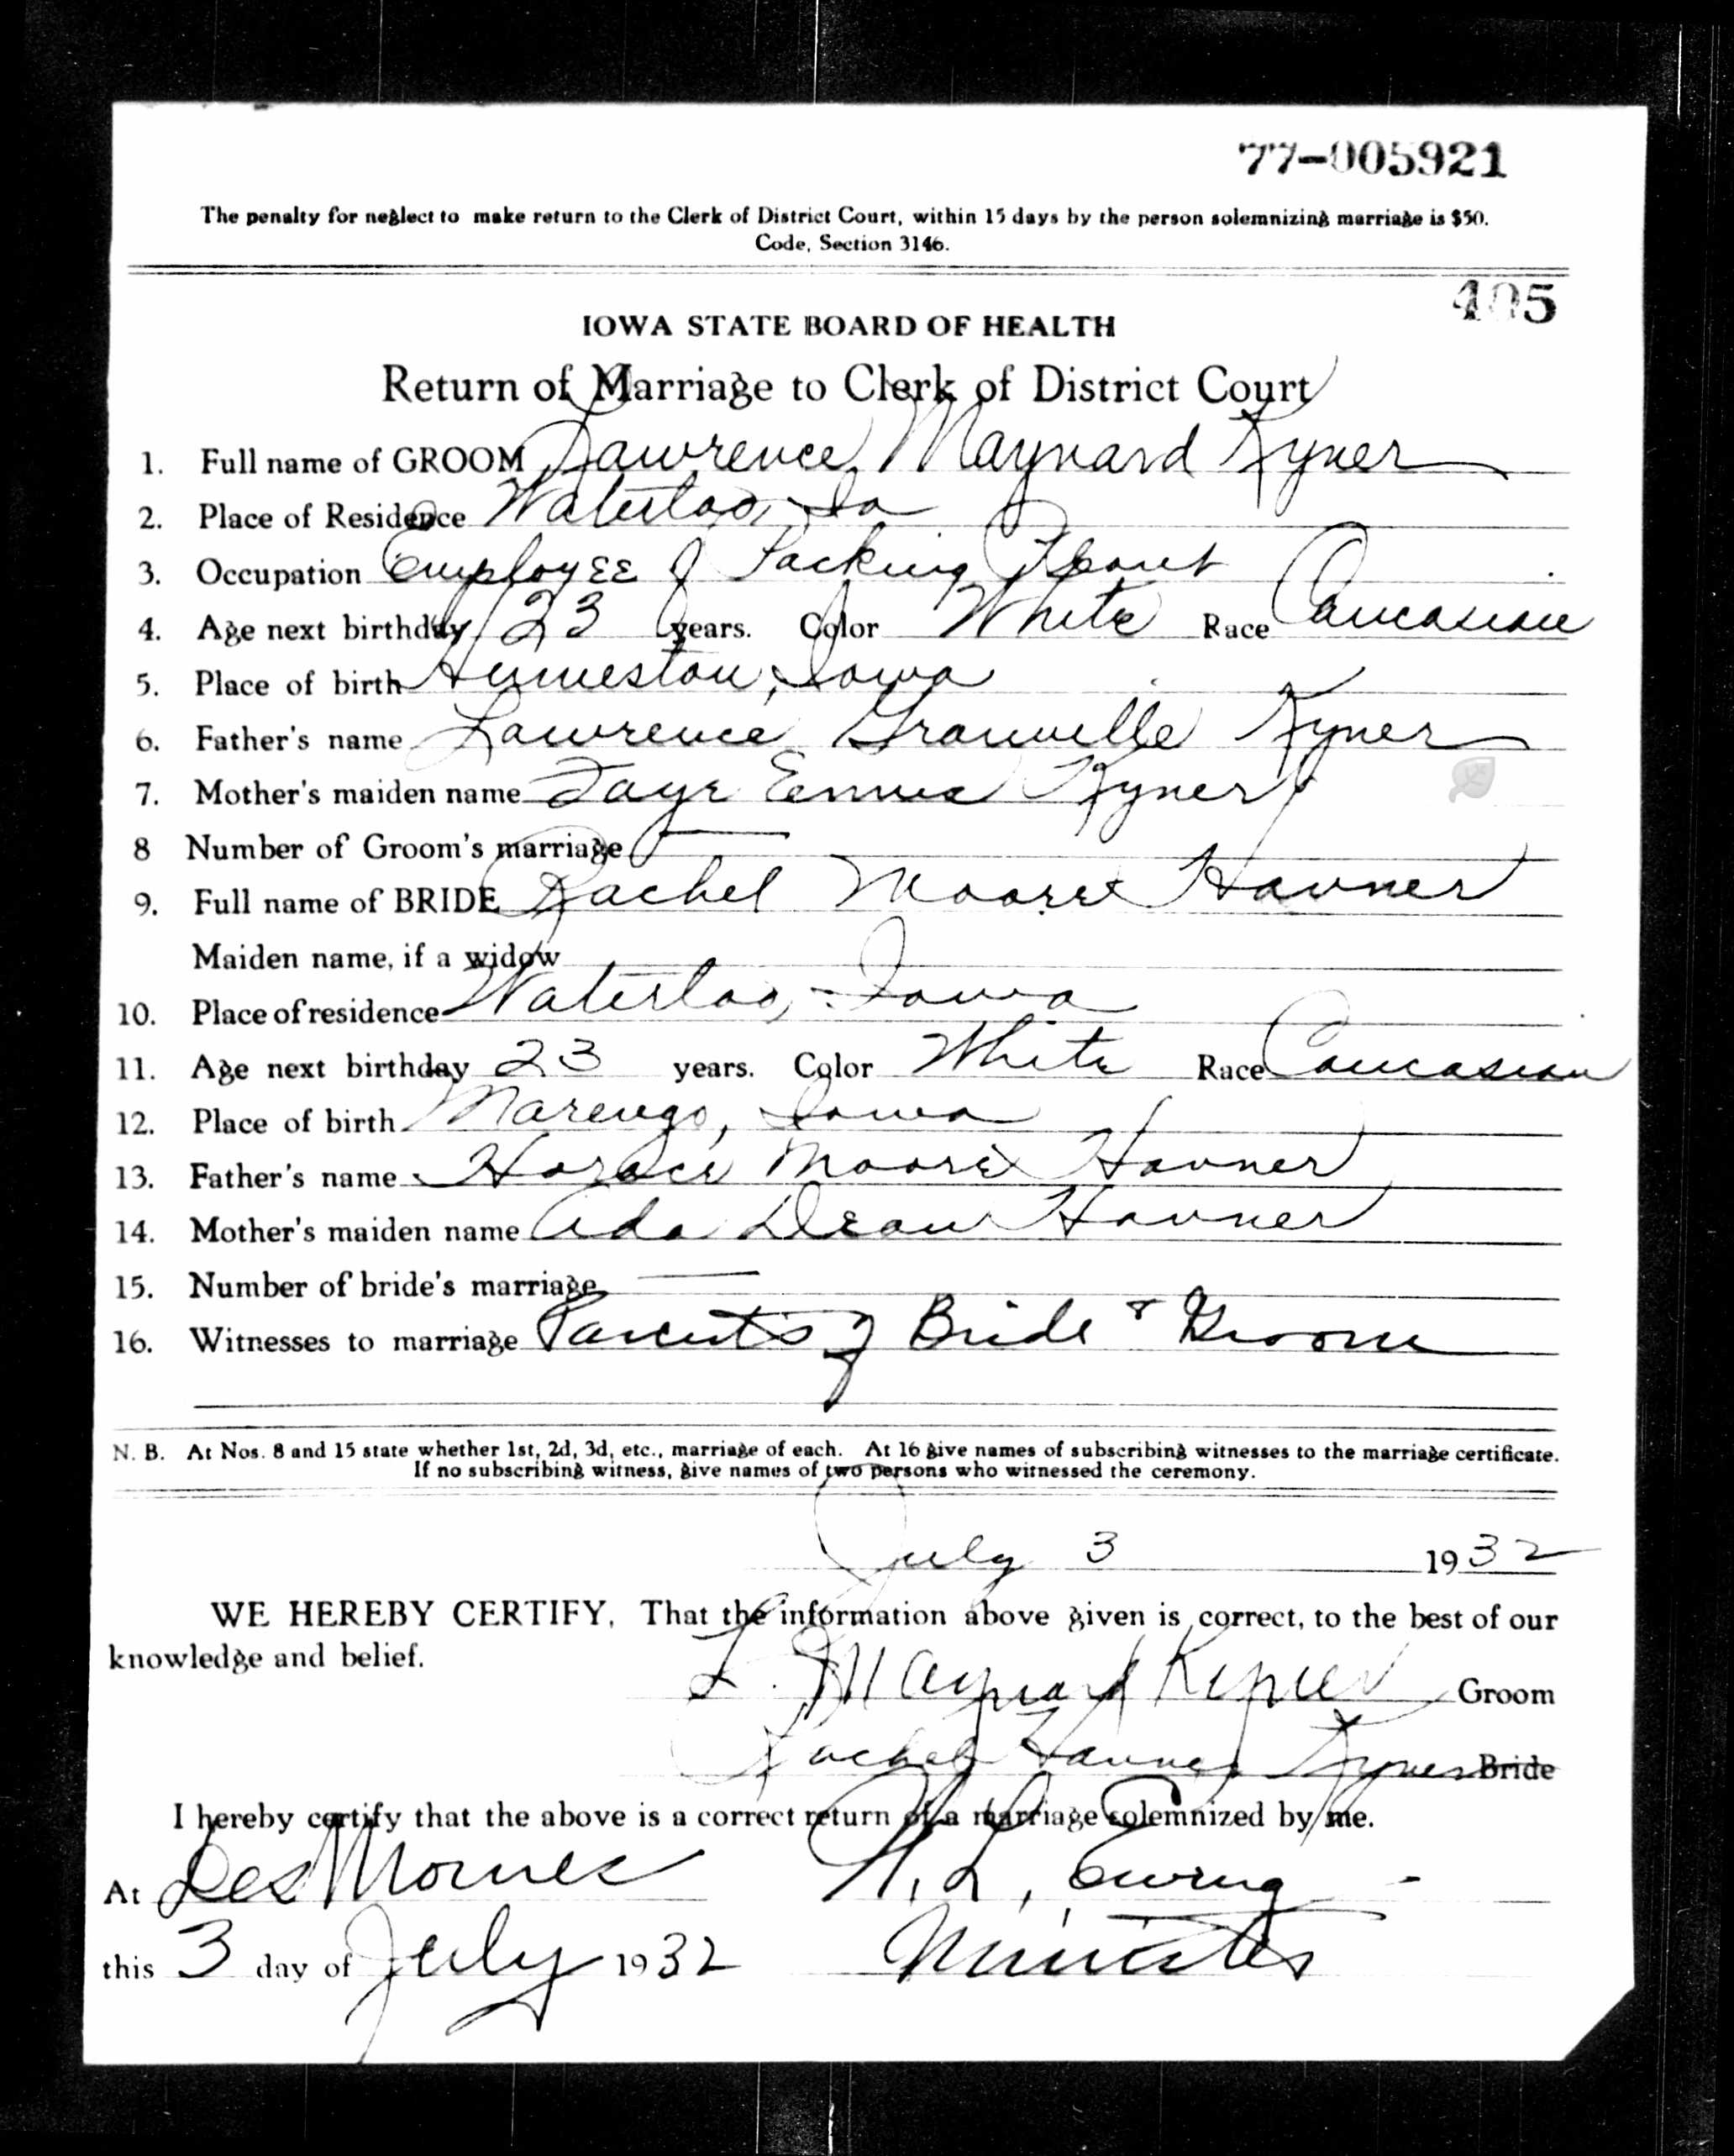 77-005921
The penalty for neglect to make return to the Clerk of District Court, within 15 days by the person solemnizing marriage is $50.
Code, Section 3146.
405
IOWA STATE BOARD OF HEALTH
Return of Marriage to Clerk of District Court
1. Full name of GROOM Lawrence Maynard Kyner
2. Place of Residence Waterloo, Ia
3. Occupation Employee of Packing Plant
4. Age next birthday 23 years. Color White Race Caucasian
5. Place of birth Humeston, Iowa
6. Father's name Lawrence Granville Kyner
7. Mother's maiden name Faye Kyner
8 Number of Groom's marriage —
9. Full name of BRIDE Rachel Moore Havner
Maiden name, if a widow
10. Place of residence Waterloo, Iowa
11. Age next birthday 23 years. Color White Race Caucasian
12. Place of birth Marengo, Iowa
13. Father's name Horace Moore Havner
14. Mother's maiden name Ada Dean Havner
15. Number of bride's marriage —
16. Witnesses to marriage Parents of Bride & Groom
N. B. At Nos. 8 and 15 state whether 1st, 2d, 3d, etc., marriage of each. At 16 give names of subscribing witnesses to the marriage certificate.
If no subscribing witness, give names of two persons who witnessed the ceremony.
July 3 1932
WE HEREBY CERTIFY, That the information above given is correct, to the best of our
knowledge and belief.
L. Maynard Kyner Groom
Rachel Havner Kyner Bride
I hereby certify that the above is a correct return of a marriage solemnized by me.
At Des Moines Ewing
this 3 day of July 1932 Minister